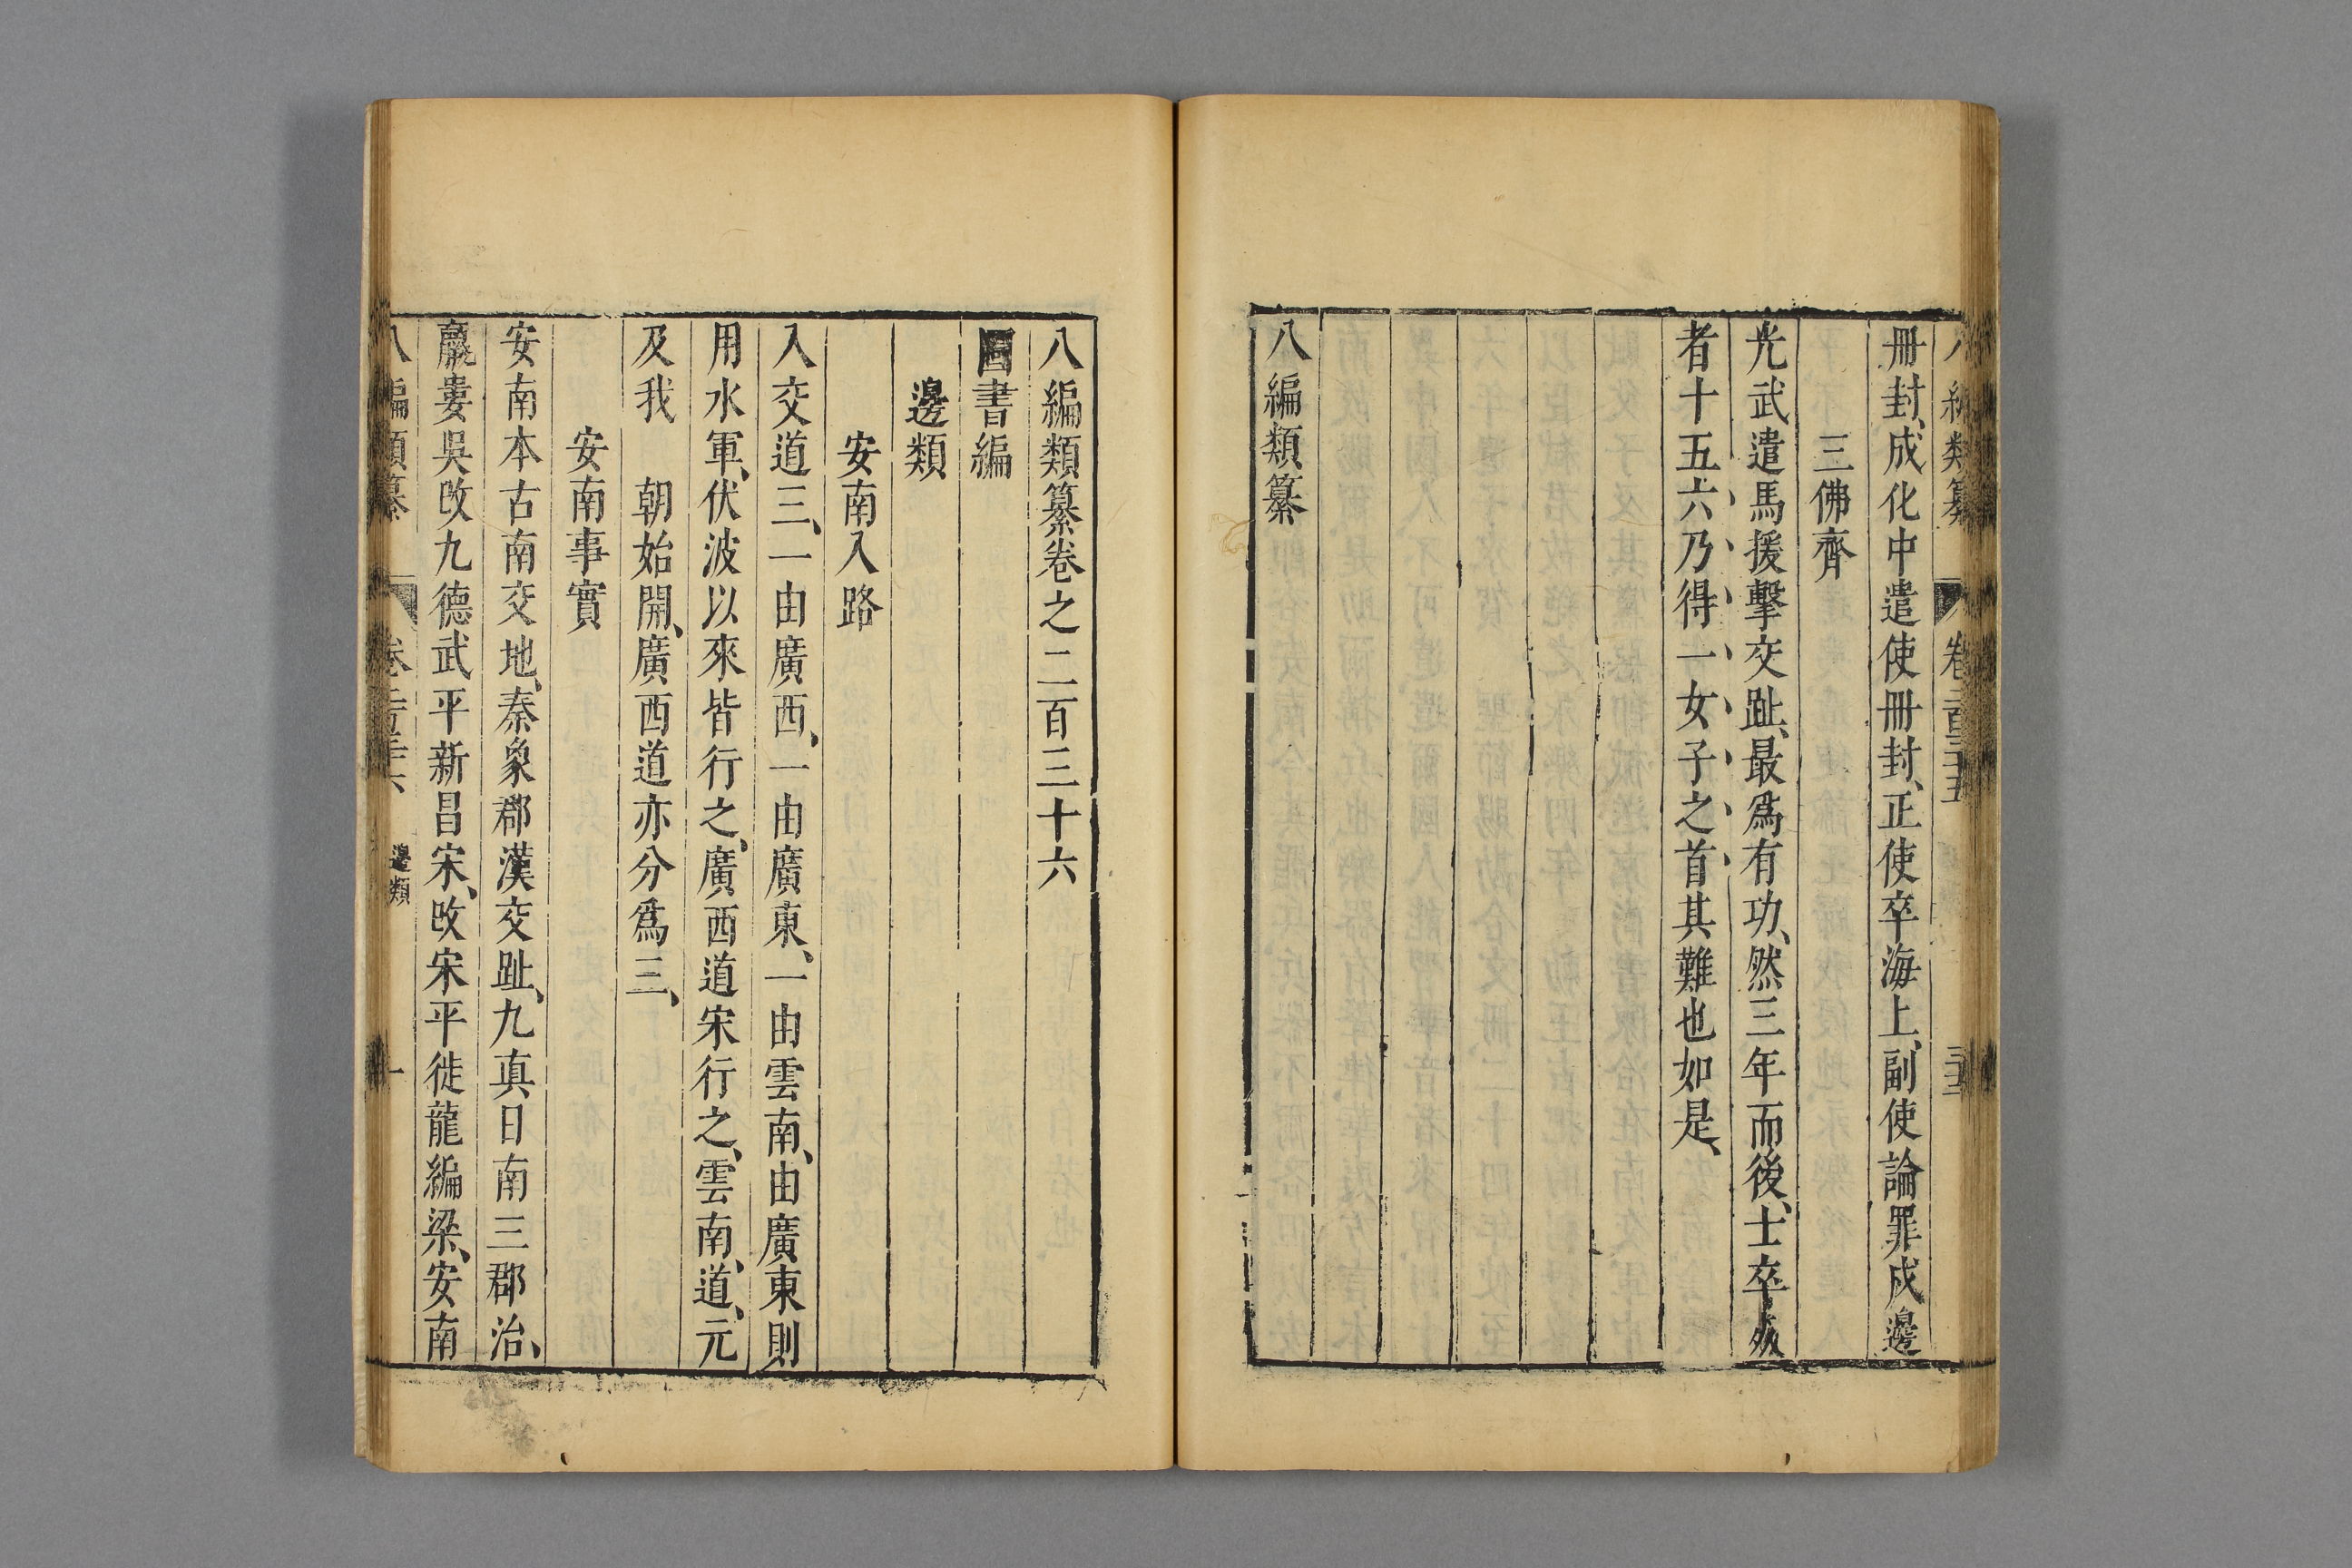 八編類纂 卷二百三十五 三十三
冊封、成化中遣使冊封、正使卒海上、副使論罪戍邊
三佛齊
光武遣馬援擊交趾、最爲有功、然三年而後、士卒
者十五六乃得一女子之首其難也如是、
八編類纂
八編類纂卷之二百三十六
圖書編
邊類
安南入路
入交道三、一由廣西、一由廣東、一由雲南、由廣東則
用水軍、伏波以來皆行之、廣西道宋行之、雲南、道、元
及我 朝始開、廣西道亦分爲三、
安南事實
安南本古南交地、秦象郡漢交趾、九真日南三郡治、
羸婁吳改九德武平新昌宋、改宋平徙龍編梁、安南
八編類纂 卷二百三十六 邊類 一